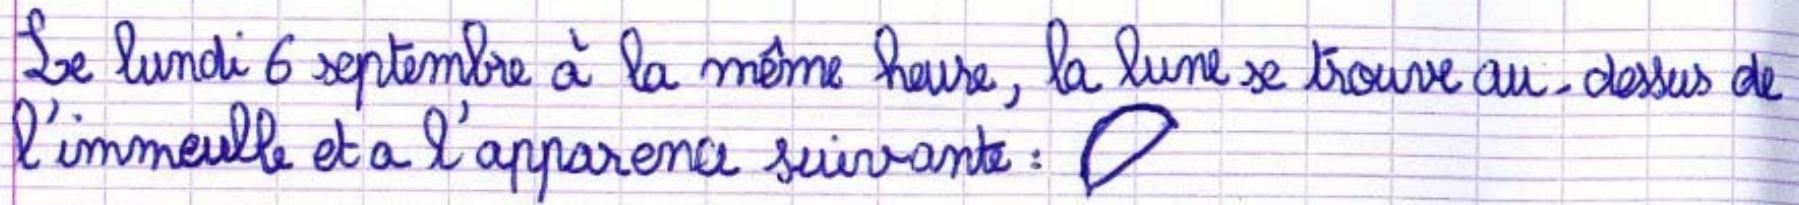 Le lundi 6 septembre à la même heure, la lune se trouve au-dessus de
l'immeulle et a l'apparence suivante :